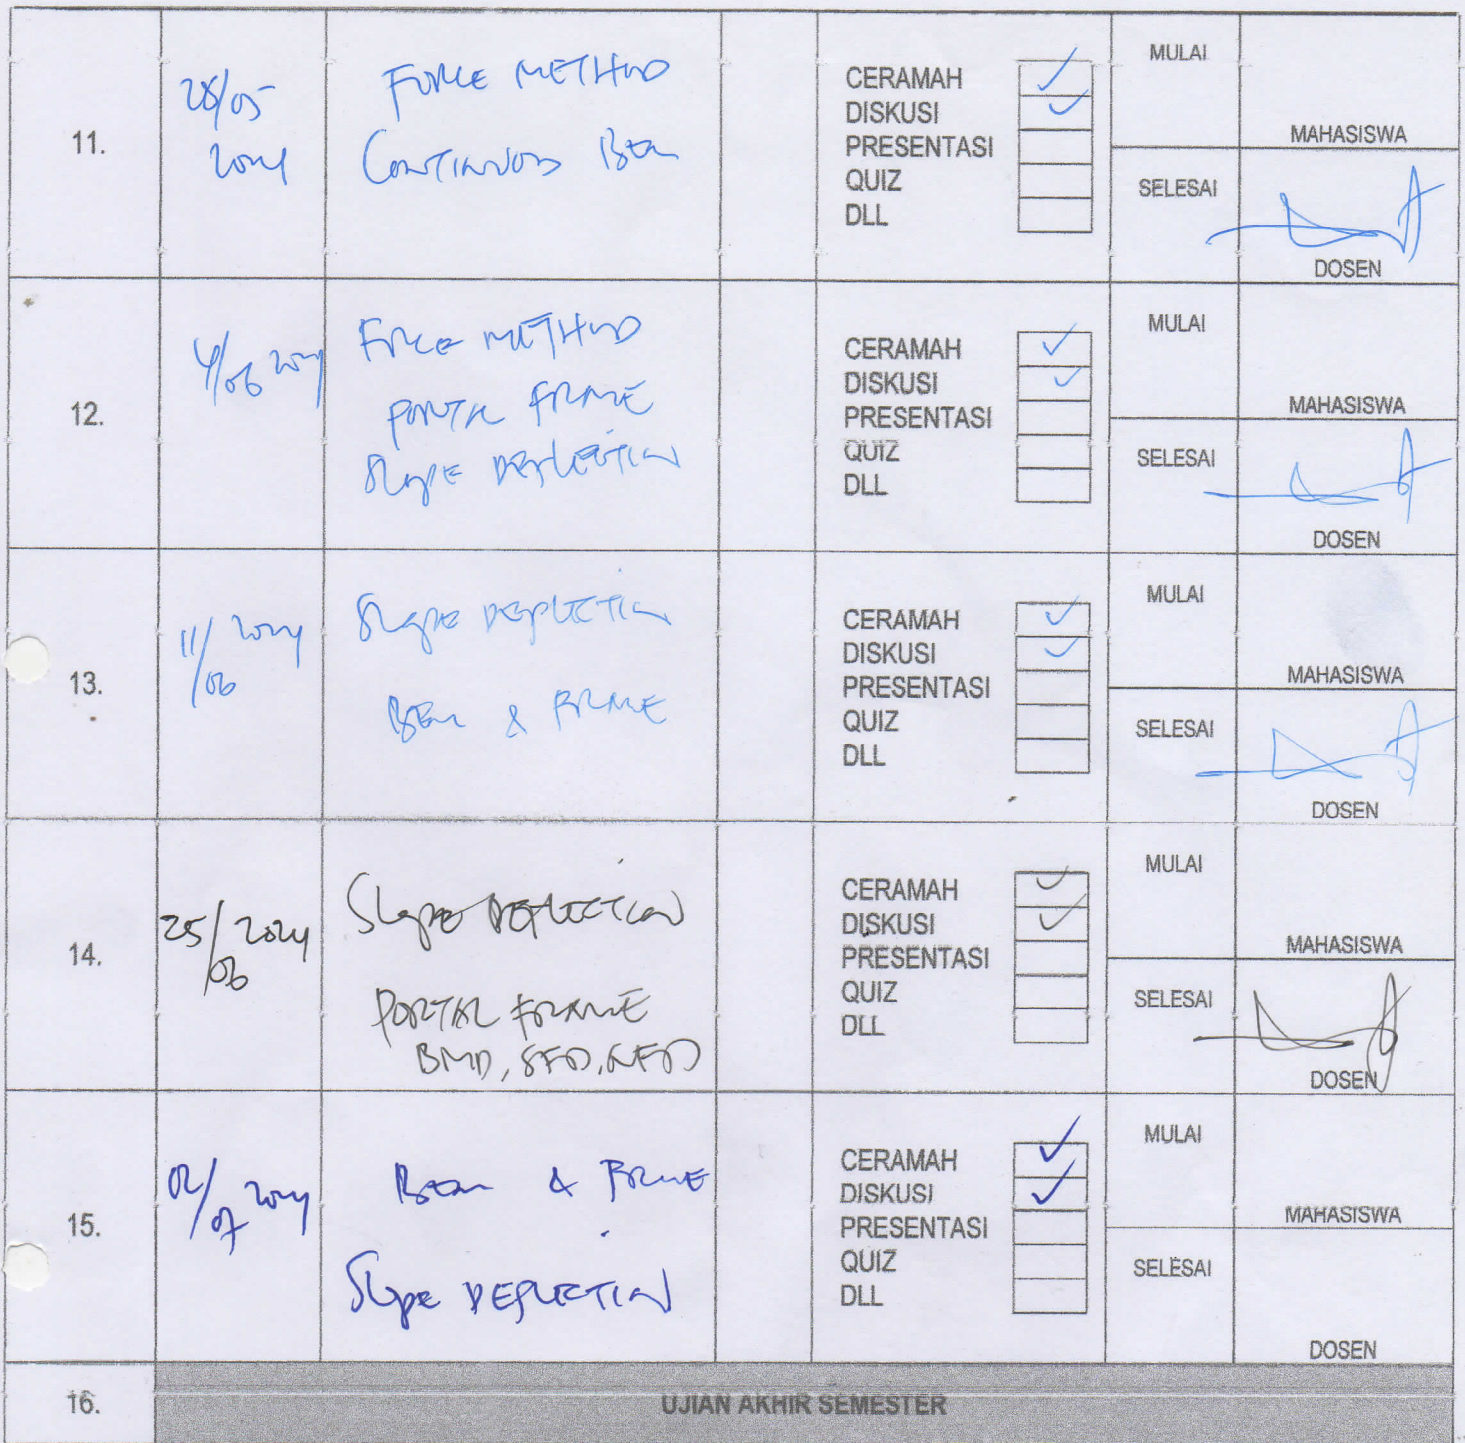 11.
28/05
2024
FORCE METHOD
CONTINUOUS BEAM
CERAMAH
DISKUSI
PRESENTASI
QUIZ
DLL
MULAI
MAHASISWA
SELESAI
DOSEN
12.
4/06 2024
FORCE METHOD
PORTAL FRAME
SLOPE DEFLECTION
CERAMAH
DISKUSI
PRESENTASI
QUIZ
DLL
MULAI
MAHASISWA
SELESAI
DOSEN
13.
11/06 2024
SLOPE DEFLECTION
BEAM & FRAME
CERAMAH
DISKUSI
PRESENTASI
QUIZ
DLL
MULAI
MAHASISWA
SELESAI
DOSEN
14.
25/06 2024
SLOPE DEFLECTION
PORTAL FRAME
BMD, SFD, NFD
CERAMAH
DISKUSI
PRESENTASI
QUIZ
DLL
MULAI
MAHASISWA
SELESAI
DOSEN
15.
02/07 2024
BEAM & FRAME
SLOPE DEFLECTION
CERAMAH
DISKUSI
PRESENTASI
QUIZ
DLL
MULAI
MAHASISWA
SELESAI
DOSEN
16.
UJIAN AKHIR SEMESTER